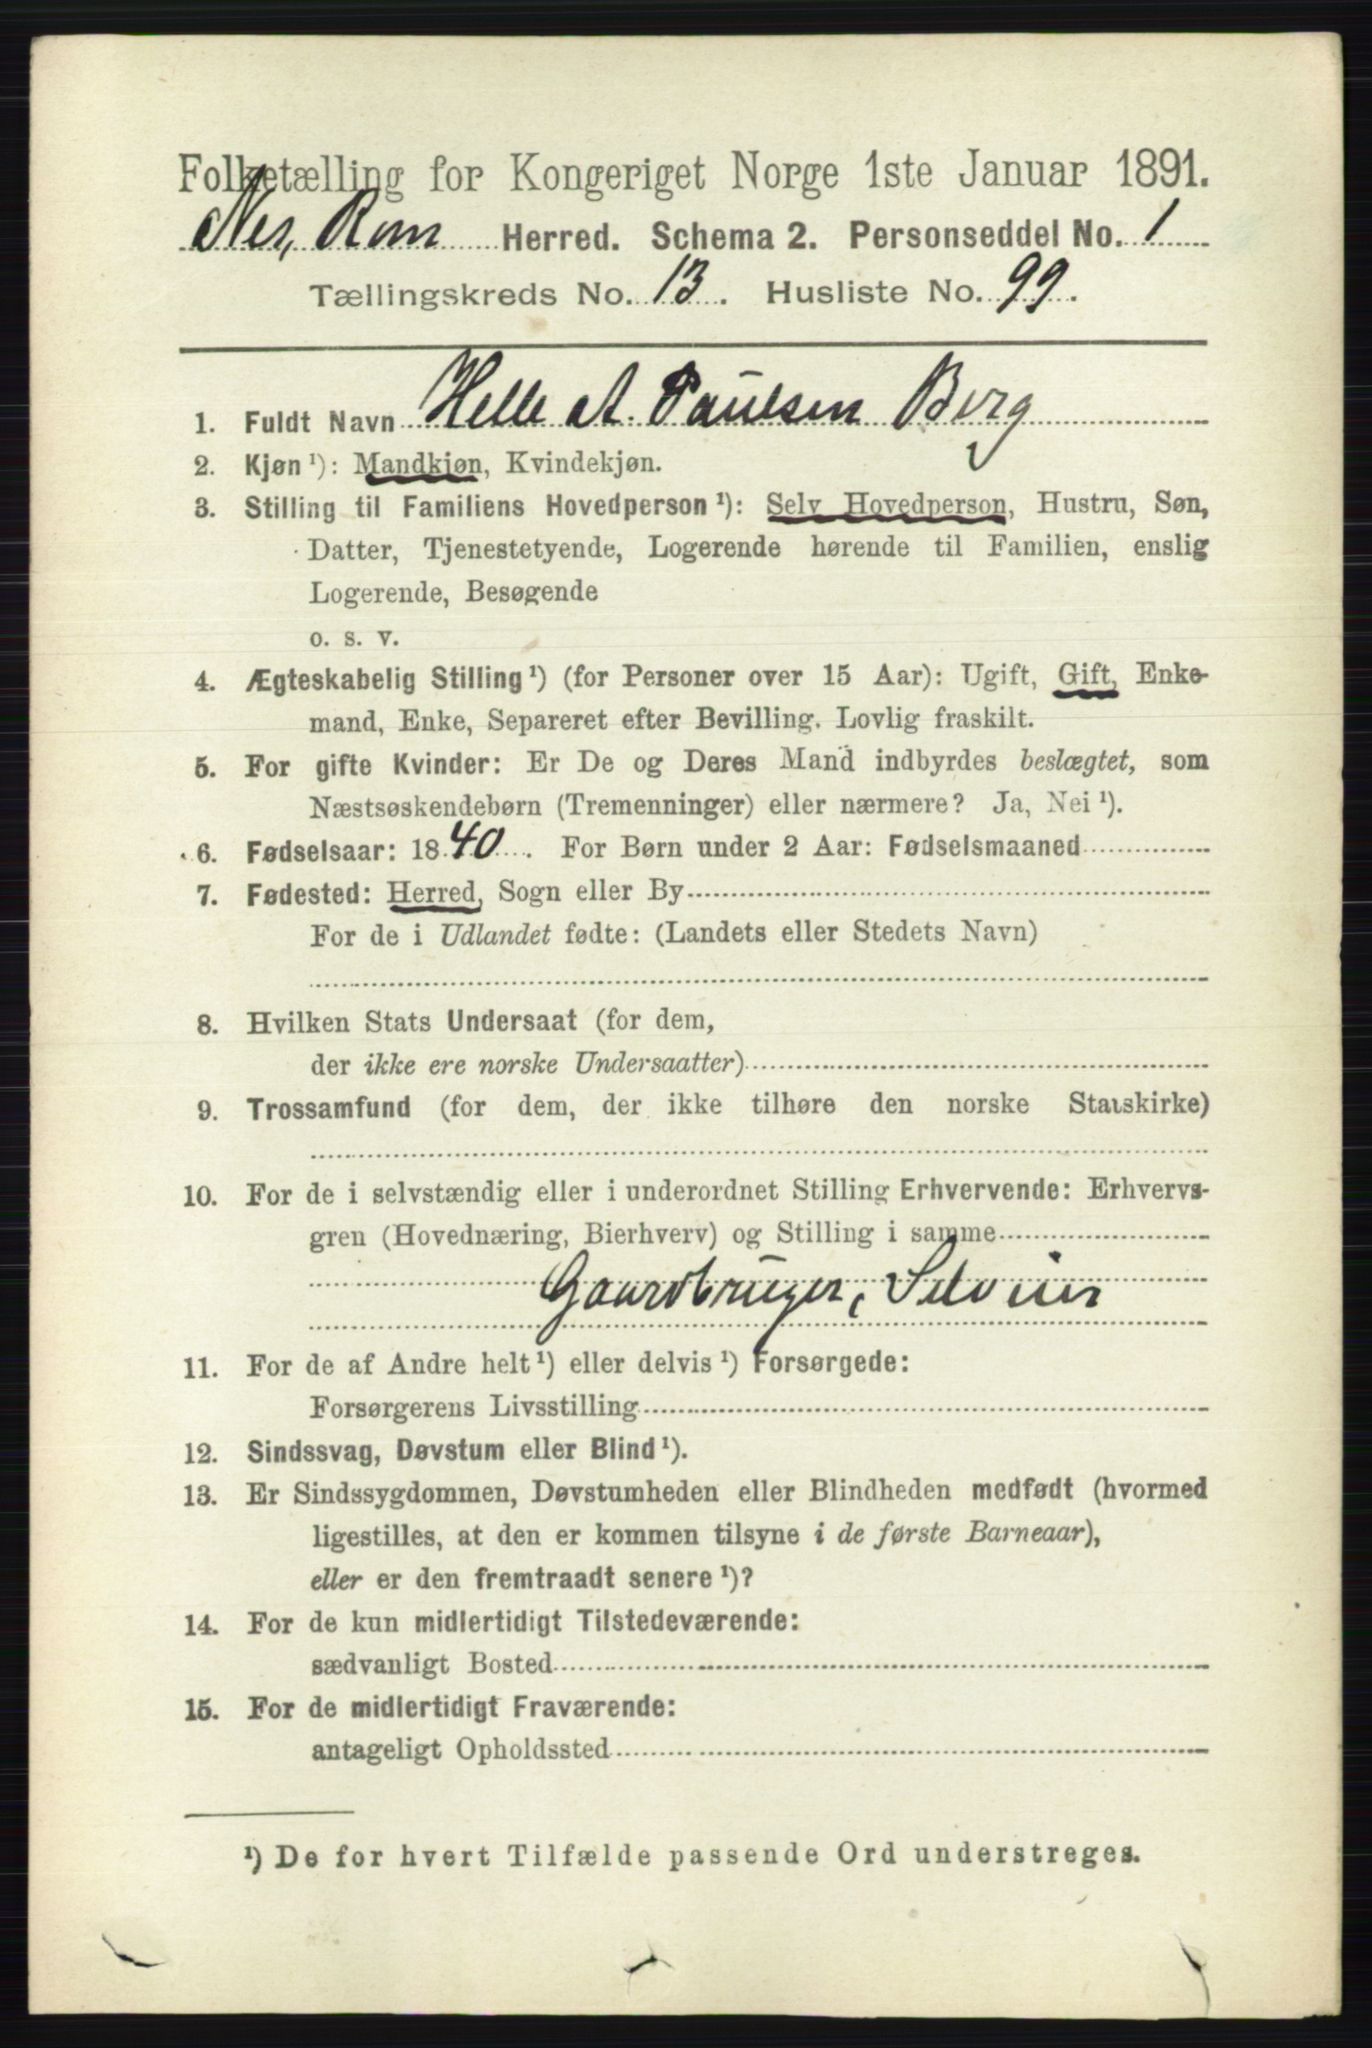 Folketælling for Kongeriget Norge 1ste Januar 1891.
Nes, Rom Herred. Schema 2. Personseddel No. 1
Tællingskreds No. 13. Husliste No. 99.
1. Fuldt Navn Helle A. Paulsen Berg
2. Kjøn ¹): Mandkjøn, Kvindekjøn.
3. Stilling til Familiens Hovedperson ¹): Selv Hovedperson, Hustru, Søn,
Datter, Tjenestetyende, Logerende hørende til Familien, enslig
Logerende, Besøgende
o. s. v.
4. Ægteskabelig Stilling ¹) (for Personer over 15 Aar): Ugift, Gift, Enke-
mand, Enke, Separeret efter Bevilling. Lovlig fraskilt.
5. For gifte Kvinder: Er De og Deres Mand indbyrdes beslægtet, som
Næstsøskendebørn (Tremenninger) eller nærmere? Ja, Nei ¹).
6. Fødselsaar: 1840. For Børn under 2 Aar: Fødselsmaaned
7. Fødested: Herred, Sogn eller By
For de i Udlandet fødte: (Landets eller Stedets Navn)
8. Hvilken Stats Undersaat (for dem,
der ikke ere norske Undersaatter)
9. Trossamfund (for dem, der ikke tilhøre den norske Statskirke)
10. For de i selvstændig eller i underordnet Stilling Erhvervende: Erhvervs-
gren (Hovednæring, Bierhverv) og Stilling i samme
Gaardbruger, Selveier
11. For de af Andre helt ¹) eller delvis ¹) Forsørgede:
Forsørgerens Livsstilling
12. Sindssvag, Døvstum eller Blind ¹).
13. Er Sindssygdommen, Døvstumheden eller Blindheden medfødt (hvormed
ligestilles, at den er kommen tilsyne i de første Barneaar),
eller er den fremtraadt senere ¹)?
14. For de kun midlertidigt Tilstedeværende:
sædvanligt Bosted
15. For de midlertidigt Fraværende:
antageligt Opholdssted
¹) De for hvert Tilfælde passende Ord understreges.